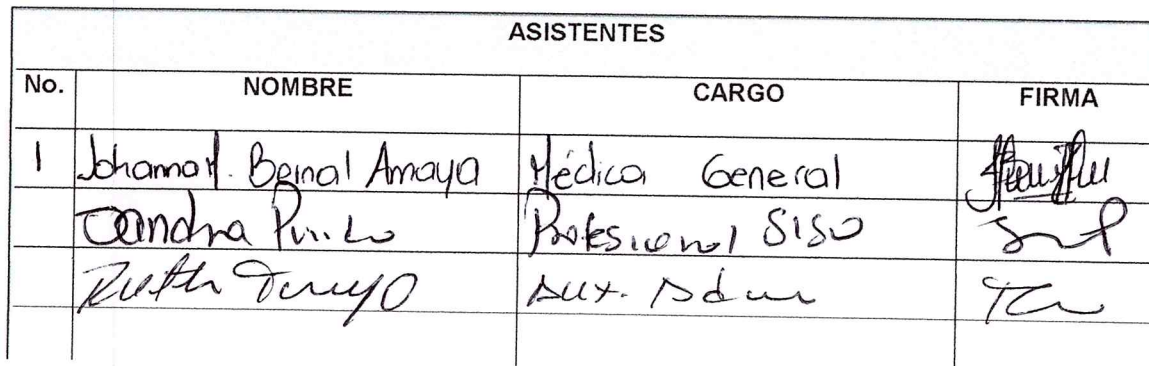 ASISTENTES
No. NOMBRE CARGO FIRMA
1 Johanna M. Bernal Amaya Médica General
Sandra Profesional SISO
Ruth Aux. Adm